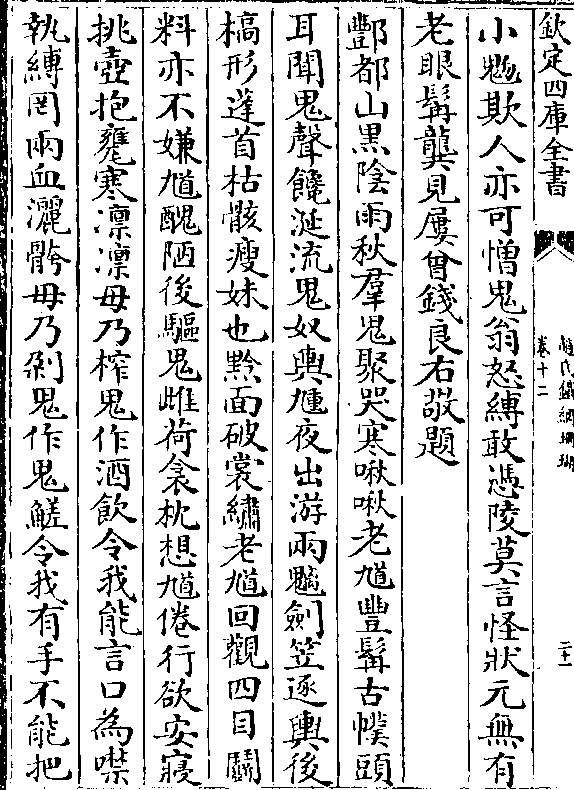 欽定四庫全書
趙氏鐵網珊瑚
卷十二
二十
小魅欺人亦可憎鬼翁怒縛敢憑陵莫言怪狀元無有
老眼髯龔見屢曾錢良右敬題
酆都山黑陰雨秋羣鬼聚哭寒啾啾老馗豐髯古幞頭
耳聞鬼聲饞涎流鬼奴輿馗夜出游兩魑劍笠逐輿後
槁形蓬首枯骸瘦妹也黔面破裳繡老馗回觀四目鬬
料亦不嫌馗醜陋後驅鬼雌荷衾枕想馗倦行欲安寢
挑壺抱甕寒凛凛毋乃榨鬼作酒飲令我能言口為噤
執縛罔兩血灑骻毋乃剁鬼作鬼鮓令我有手不能把